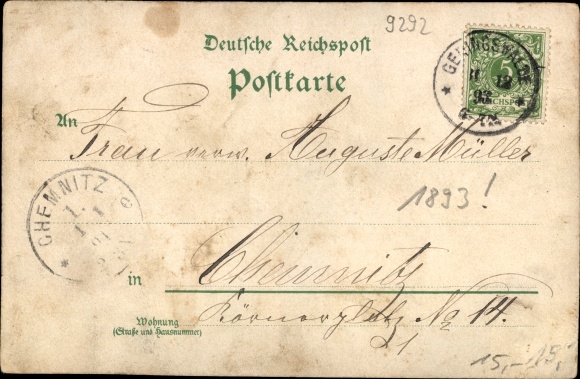 9292
Deutsche Reichspost
Postkarte
GERINGSWALDE
93
5
REICHSPOST
An Frau verw. Auguste Müller
1893!
CHEMNITZ
in Chemnitz
Wohnung
(Straße und Hausnummer)
Körnerplatz No 14.
15,-